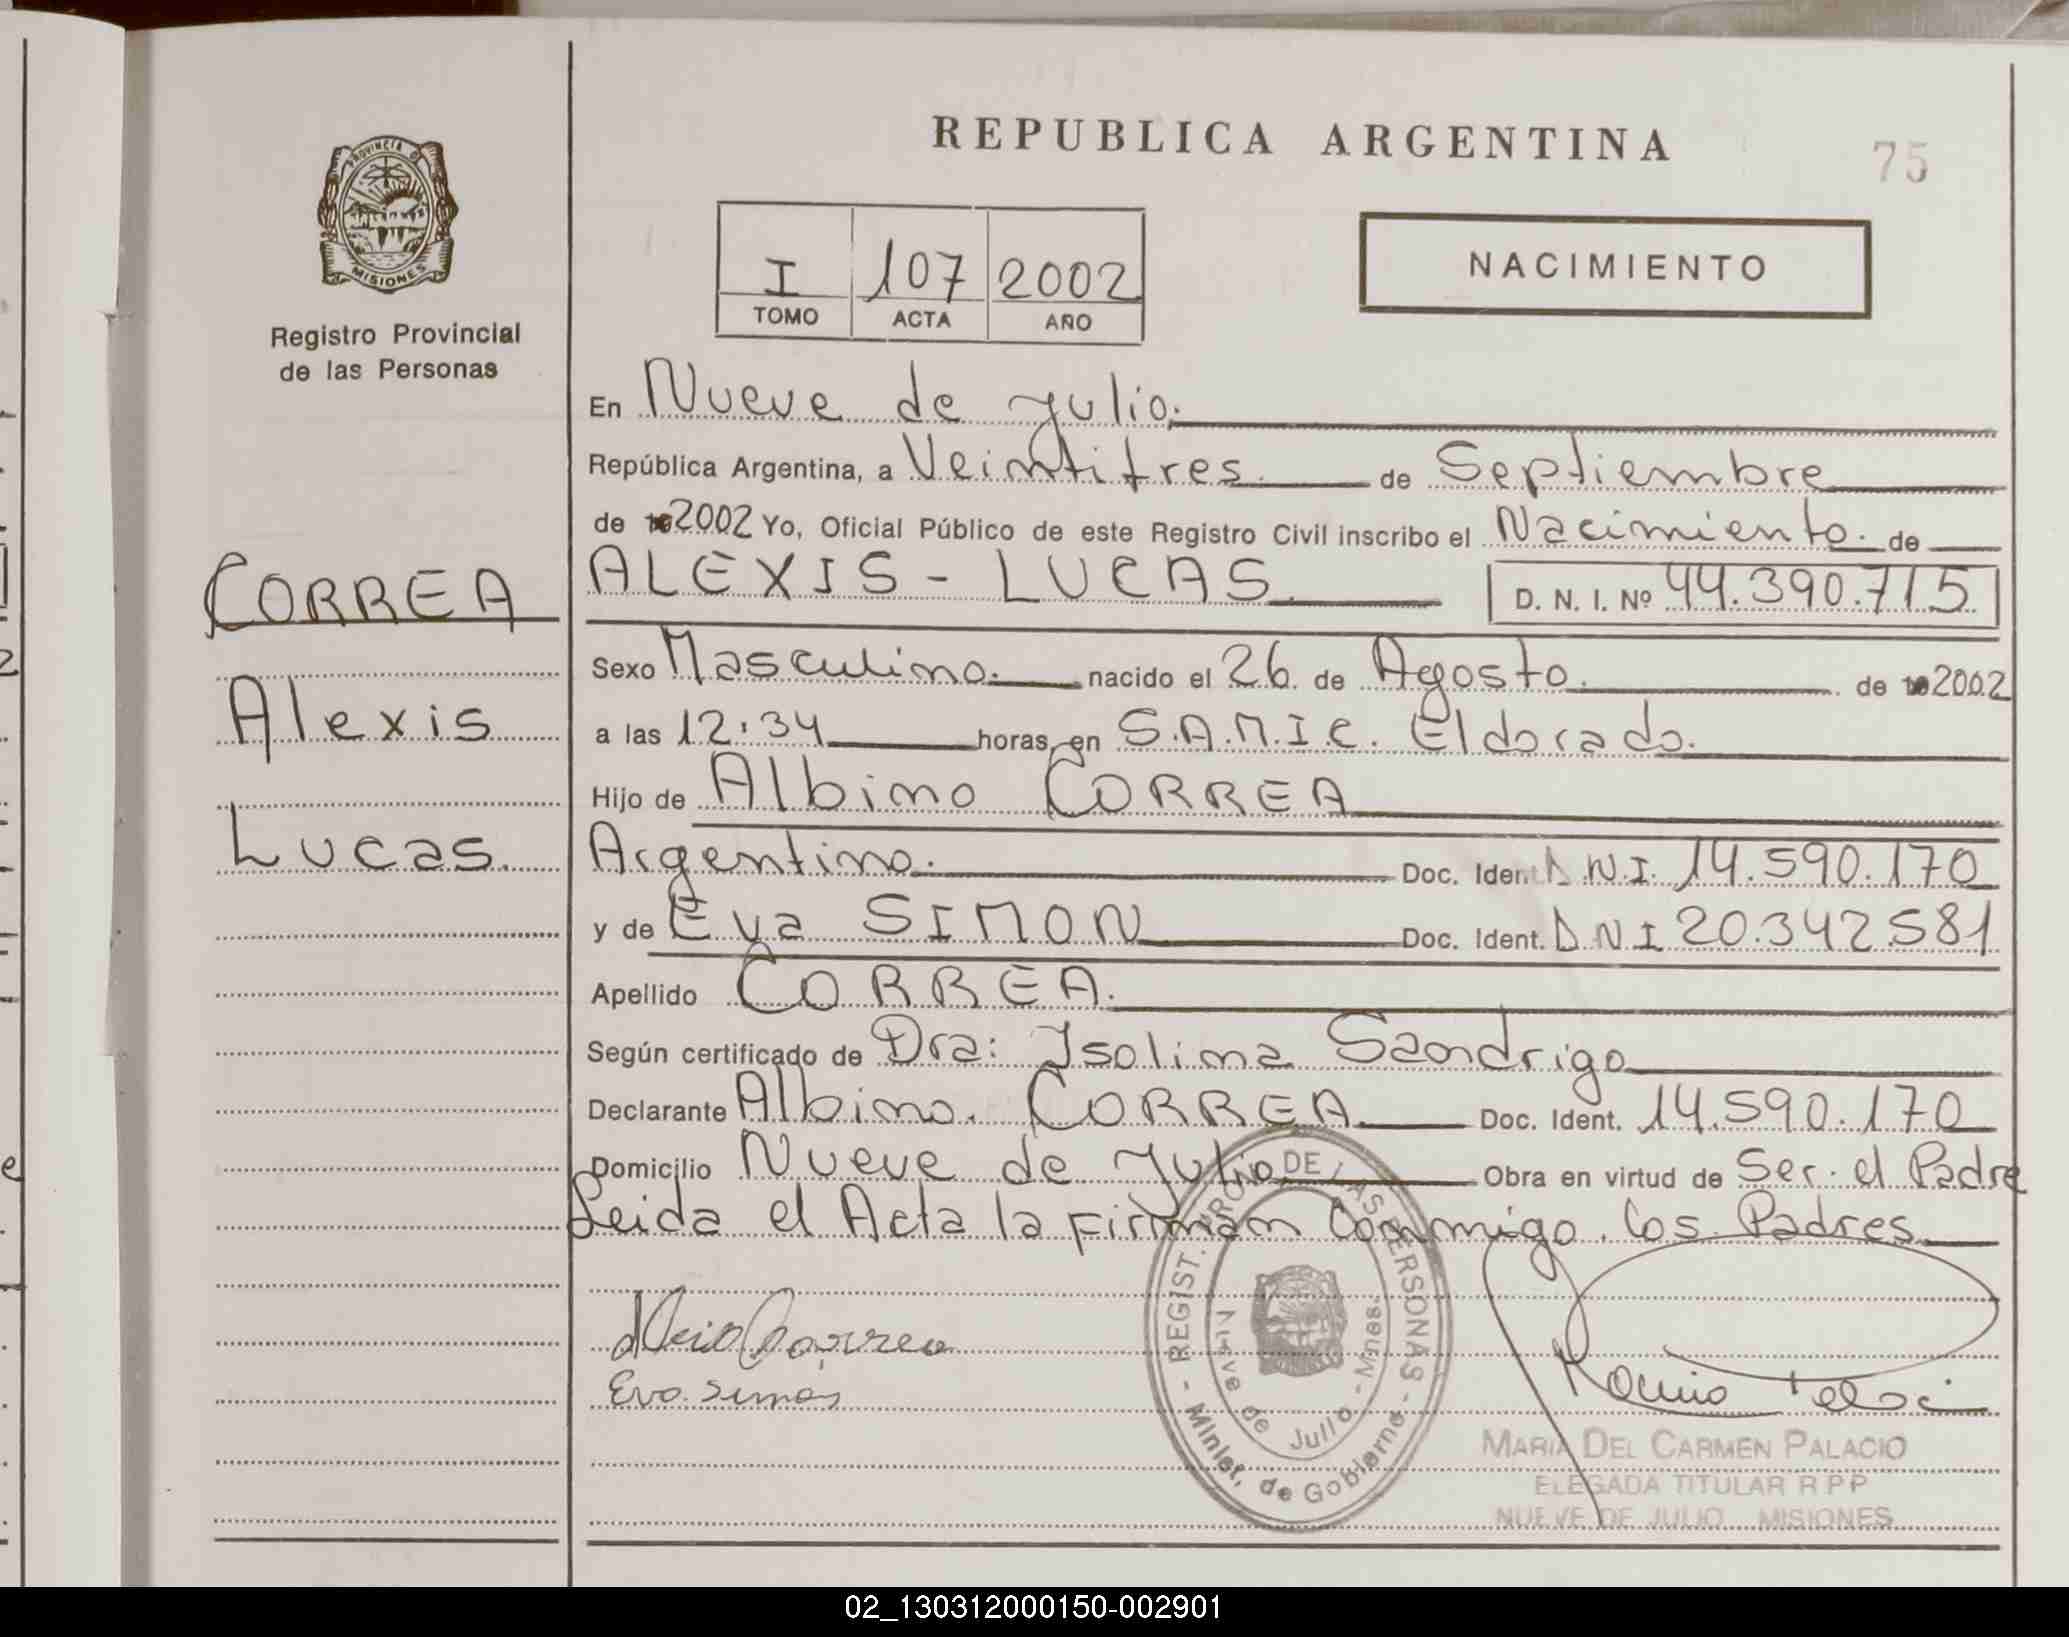 REPUBLICA ARGENTINA
75
PROVINCIA DE
MISIONES
Registro Provincial
de las Personas
I 107 2002
TOMO ACTA AÑO
NACIMIENTO
En Nueve de Julio.
República Argentina, a Veintitres de Septiembre
de 2002 Yo, Oficial Público de este Registro Civil inscribo el Nacimiento. de
CORREA
ALEXIS - LUCAS. D. N. I. Nº 44.390.715
Sexo Masculino. nacido el 26 de Agosto. de 2002
Alexis
a las 12:34 horas, en S.A.M.I.C. Eldorado.
Hijo de Albino CORREA
Lucas.
Argentino. Doc. Ident. D.N.I. 14.590.170
y de Eva SIMON Doc. Ident. D N I 20.342.581
Apellido CORREA.
Según certificado de Dra: Isolina Sandrigo
Declarante Albino. CORREA Doc. Ident. 14.590.170
Domicilio Nueve de Julio Obra en virtud de Ser el Padre
Leida el Acta la Firman Conmigo. los Padres
Correa
Eva. Simon
REGIST. PROV. DE LAS PERSONAS
Nueve de Julio - Mnes.
- Minist. de Gobierno -
MARIA DEL CARMEN PALACIO
ELEGADA TITULAR R P P
NUEVE DE JULIO MISIONES
02_130312000150-002901